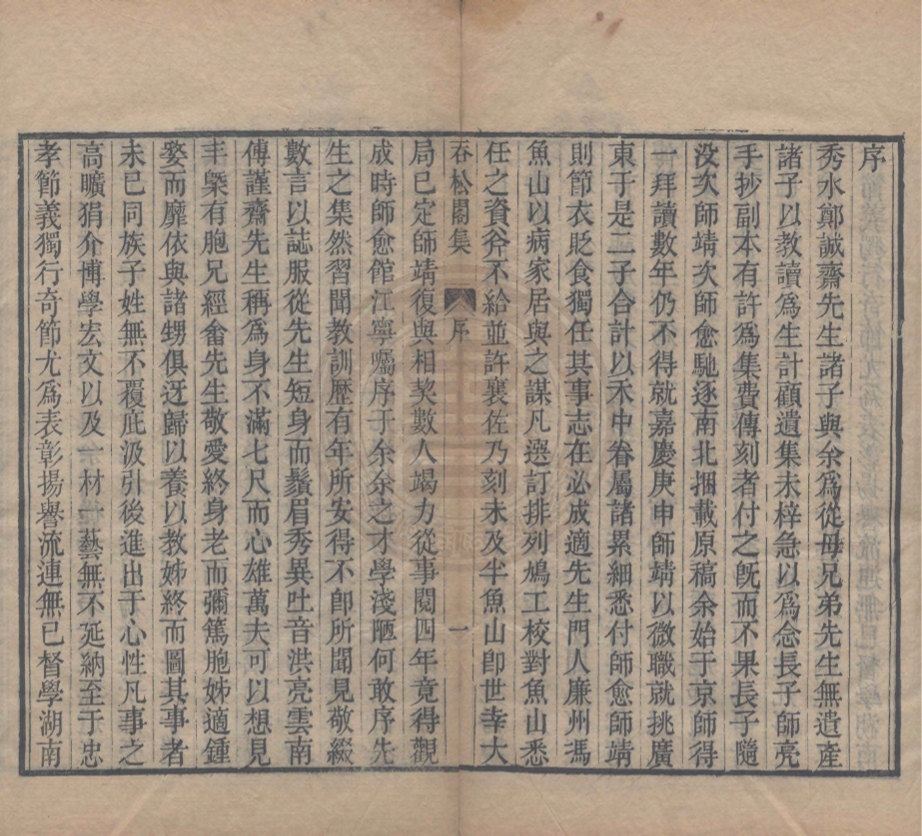 序
秀水鄭誠齋先生諸子與余爲從母兄弟先生無遺產
諸子以教讀爲生計顧遺集未梓急以爲念長子師亮
手抄副本有許爲集費傳刻者付之旣而不果長子隨
没次師靖次師愈馳逐南北捆載原稿余始于京師得
一拜讀數年仍不得就嘉慶庚申師靖以微職就挑廣
東于是二子合計以禾中眷屬諸累細悉付師愈師靖
則節衣貶食獨任其事志在必成適先生門人廉州馮
魚山以病家居與之謀凡選訂排列鳩工校對魚山悉
任之資斧不給並許襄佐乃刻未及半魚山卽世幸大
吞松閣集 序 一
局已定師靖復與相契數人竭力從事閱四年竟得觀
成時師愈館江寧囑序于余余之才學淺陋何敢序先
生之集然習聞教訓歷有年所安得不卽所聞見敬綴
數言以誌服從先生短身而鬚眉秀異吐音洪亮雲南
傳謹齋先生稱爲身不滿七尺而心雄萬夫可以想見
丰槩有胞兄經畬先生敬愛終身老而彌篤胞姊適鍾
娶而靡依與諸甥俱迓歸以養以教姊終而圖其事者
未已同族子姓無不覆庇汲引後進出于心性凡事之
高曠狷介博學宏文以及一材一藝無不延納至于忠
孝節義獨行奇節尤爲表彰揚譽流連無已督學湖南